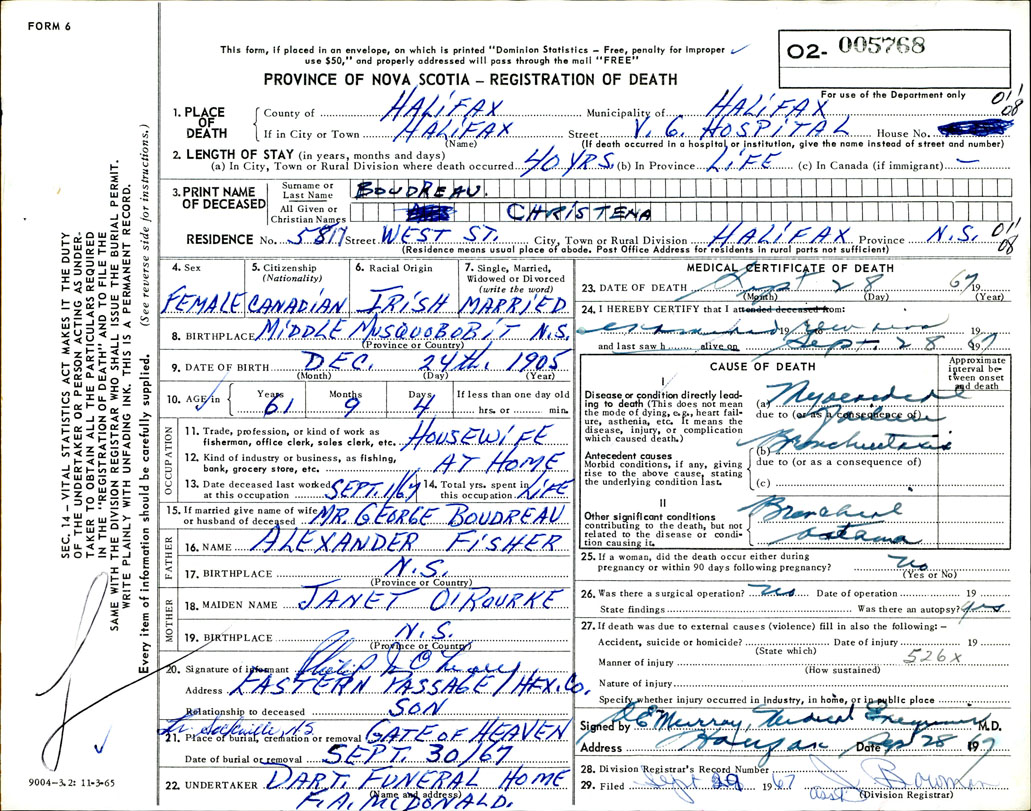 FORM 6
This form, if placed in an envelope, on which is printed "Dominion Statistics – Free, penalty for improper
use $50," and properly addressed will pass through the mail "FREE"
02- 005768
PROVINCE OF NOVA SCOTIA – REGISTRATION OF DEATH
For use of the Department only
01/08
1. PLACE OF DEATH County of HALIFAX Municipality of HALIFAX
If in City or Town HALIFAX Street V. G. HOSPITAL House No.
(Name) (If death occurred in a hospital or institution, give the name instead of street and number)
2. LENGTH OF STAY (in years, months and days)
(a) In City, Town or Rural Division where death occurred 40 YRS. (b) In Province LIFE (c) In Canada (if immigrant) —
3. PRINT NAME OF DECEASED Surname or Last Name BOUDREAU.
All Given or Christian Names CHRISTENA
RESIDENCE No. 5817 Street WEST ST. City, Town or Rural Division HALIFAX Province N.S. 01/08
(Residence means usual place of abode. Post Office Address for residents in rural parts not sufficient)
4. Sex FEMALE
5. Citizenship (Nationality) CANADIAN
6. Racial Origin IRISH
7. Single, Married, Widowed or Divorced (write the word) MARRIED
8. BIRTHPLACE MIDDLE MUSQUOBOBIT N.S.
(Province or Country)
9. DATE OF BIRTH DEC. 24th. 1905
(Month) (Day) (Year)
10. AGE in Years 61 Months 9 Days 4 If less than one day old hrs. or min.
OCCUPATION
11. Trade, profession, or kind of work as fisherman, office clerk, sales clerk, etc. HOUSEWIFE
12. Kind of industry or business, as fishing, bank, grocery store, etc. AT HOME
13. Date deceased last worked at this occupation SEPT. 1/67
14. Total yrs. spent in this occupation LIFE
15. If married give name of wife or husband of deceased MR. GEORGE BOUDREAU
FATHER
16. NAME ALEXANDER FISHER
17. BIRTHPLACE N.S.
(Province or Country)
MOTHER
18. MAIDEN NAME JANET O'ROURKE
19. BIRTHPLACE N.S.
(Province or Country)
20. Signature of informant Philip
Address EASTERN PASSAGE / HFX. CO.
Relationship to deceased SON
Sackville NS
21. Place of burial, cremation or removal GATE OF HEAVEN
Date of burial or removal SEPT. 30/67
22. UNDERTAKER DART. FUNERAL HOME
(Name and address)
F.A. McDONALD.
MEDICAL CERTIFICATE OF DEATH
23. DATE OF DEATH Sept 28 67 19
(Month) (Day) (Year)
24. I HEREBY CERTIFY that I attended deceased from:
examined 19 19
and last saw h alive on Sept. 28 1967
CAUSE OF DEATH
Approximate interval between onset and death
I
Disease or condition directly leading to death (This does not mean the mode of dying, e.g., heart failure, asthenia, etc. It means the disease, injury, or complication which caused death.)
(a) Myocardial
due to (or as a consequence of) Failure
Antecedent causes
Morbid conditions, if any, giving rise to the above cause, stating the underlying condition last.
(b) Bronchiectasis
due to (or as a consequence of)
(c)
II
Other significant conditions contributing to the death, but not related to the disease or condition causing it.
Bronchial
astama
25. If a woman, did the death occur either during pregnancy or within 90 days following pregnancy? No
(Yes or No)
26. Was there a surgical operation? No Date of operation 19
State findings Was there an autopsy? yes
27. If death was due to external causes (violence) fill in also the following: –
Accident, suicide or homicide? Date of injury 19
(State which)
Manner of injury 526x
(How sustained)
Nature of injury
Specify whether injury occurred in industry, in home, or in public place
Signed by D E Murray, Medical Examiner M.D.
Address Halifax Date Sept 28 1967
28. Division Registrar's Record Number
29. Filed Sept 29 1967 J. Bowman
asst (Division Registrar)
SEC. 14 – VITAL STATISTICS ACT MAKES IT THE DUTY
OF THE UNDERTAKER OR PERSON ACTING AS UNDER-
TAKER TO OBTAIN ALL THE PARTICULARS REQUIRED
IN THE "REGISTRATION OF DEATH" AND TO FILE THE
SAME WITH THE DIVISION REGISTRAR WHO SHALL ISSUE THE BURIAL PERMIT.
WRITE PLAINLY WITH UNFADING INK. THIS IS A PERMANENT RECORD.
Every item of information should be carefully supplied. (See reverse side for instructions.)
9004-3.2: 11-3-65